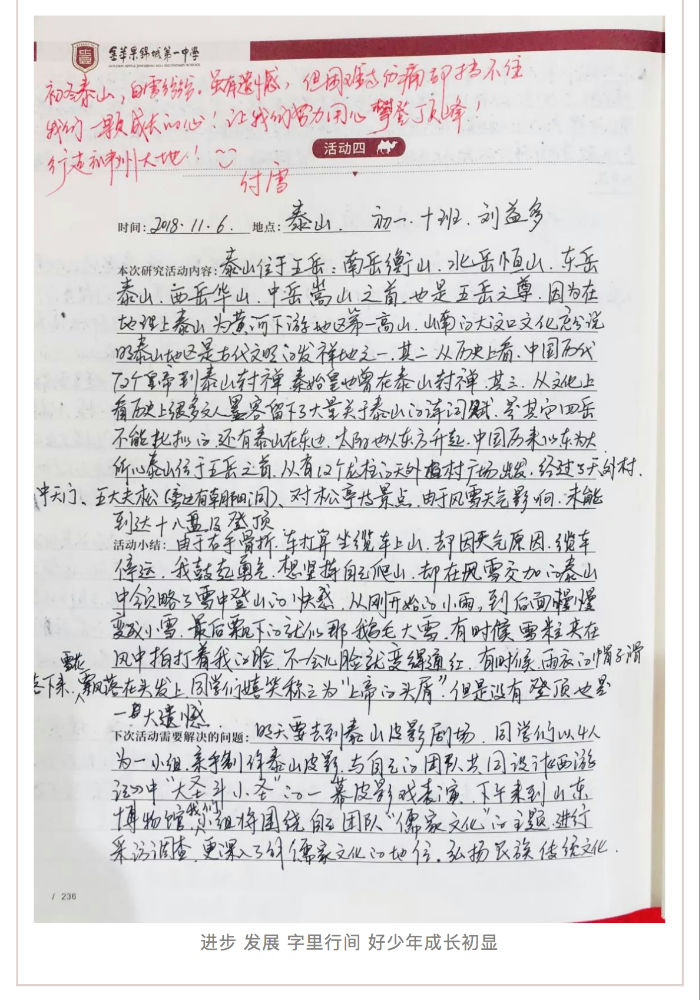 金苹果锦城第一中学
初冬泰山，白雪纷纷。虽有遗憾，但困难与伤痛却挡不住
我们一颗成长的心！让我们努力用心攀登顶峰！
行走神州大地！
付雪
活动四
时间：2018.11.6. 地点：泰山. 初一.十班.刘益多
本次研究活动内容：泰山位于五岳：南岳衡山.北岳恒山.东岳
泰山.西岳华山.中岳嵩山之首.也是五岳之尊.因为在
地理上泰山为黄河下游地区第一高山.山南的大汶口文化充分说
明泰山地区是古代文明的发祥地之一.其二.从历史上看.中国历代
72个皇帝到泰山封禅.秦始皇也曾在泰山封禅.其三.从文化上
看历史上很多文人墨客留下了大量关于泰山的诗词赋.是其它四岳
不能比拟的.还有泰山在东边.太阳也从东方升起.中国历来以东为大
所以泰山位于五岳之首.从有12个龙柱的天外村广场出发.经过了天外村.
中天门、五大夫松(旁边有朝阳洞)、对松亭等景点.由于风雪天气影响.未能
到达十八盘及登顶
活动小结：由于右手骨折.本打算坐缆车上山.却因天气原因.缆车
停运.我鼓起勇气.想坚持自己爬山.却在风雪交加的泰山
中领略了雪中登山的快感.从刚开始的小雨,到后面慢慢
变成小雪.最后飘下的就似那鹅毛大雪.有时候雪粒夹在
风中拍打着我的脸.不一会儿脸就变得通红.有时候.雨衣的帽子滑
落下来.雪花飘落在头发上.同学们嬉笑称之为“上帝的头屑”.但是没有登顶也是
一大遗憾.
下次活动需要解决的问题：明天要去到泰山皮影剧场.同学们以4人
为一小组.亲手制作泰山皮影.与自己的团队共同设计《西游
记》中“大圣斗小圣”的一幕皮影戏表演.下午来到山东
博物馆.我们小组将围绕自己团队“儒家文化”的主题.进行
采访调查.更深入了解儒家文化的地位.弘扬民族传统文化.
/ 236
进步 发展 字里行间 好少年成长初显